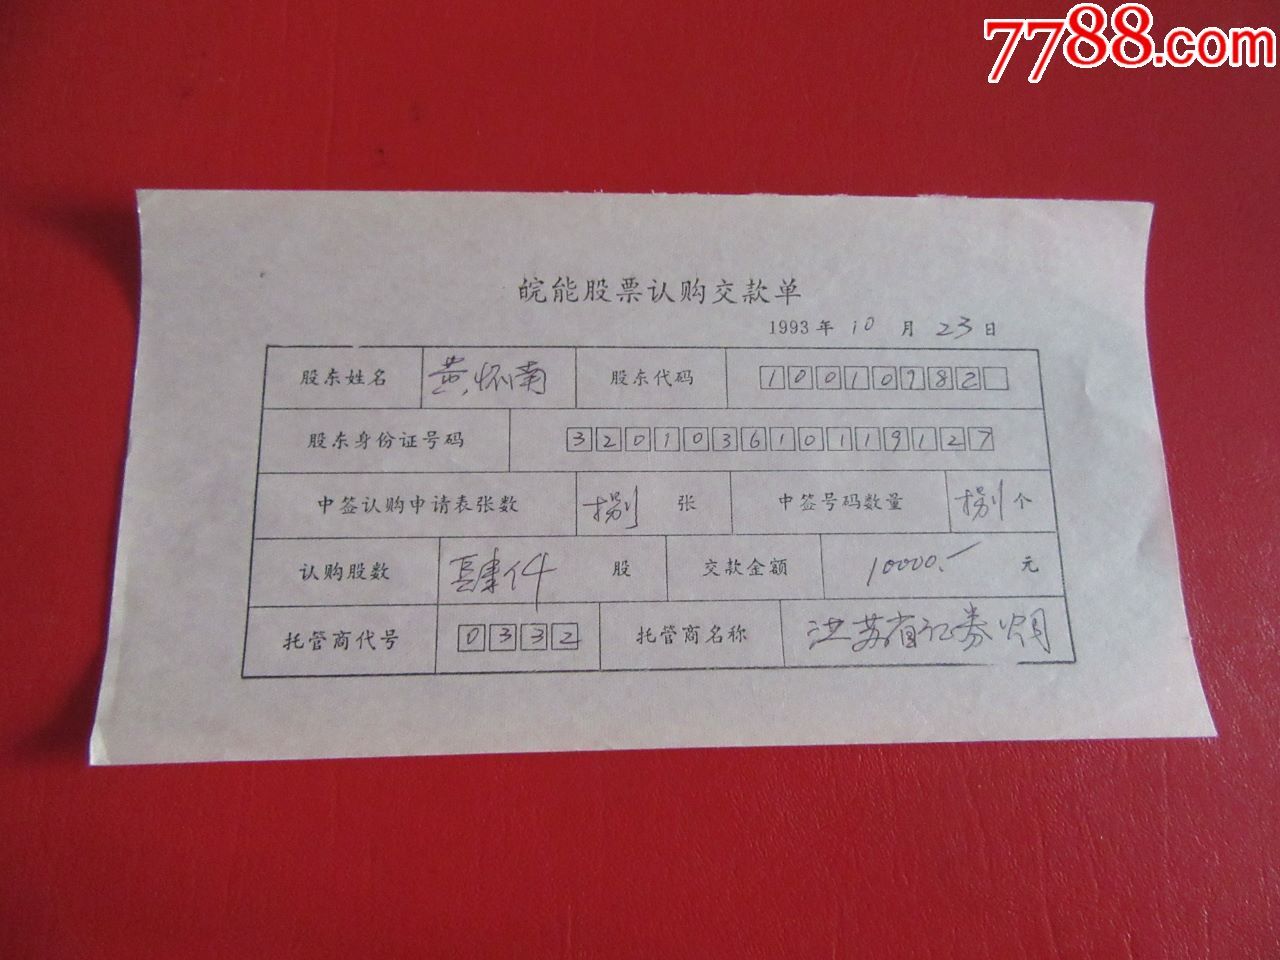 7788.com
皖能股票认购交款单
1993 年 10 月 23 日
股东姓名 黄怀南 股东代码 10010782
股东身份证号码 320103610119127
中签认购申请表张数 捌 张 中签号码数量 捌 个
认购股数 肆仟 股 交款金额 10000.— 元
托管商代号 0332 托管商名称 江苏省证券